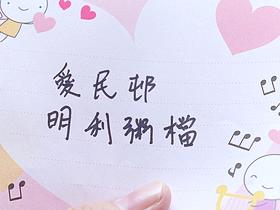 愛民邨
明利粥檔